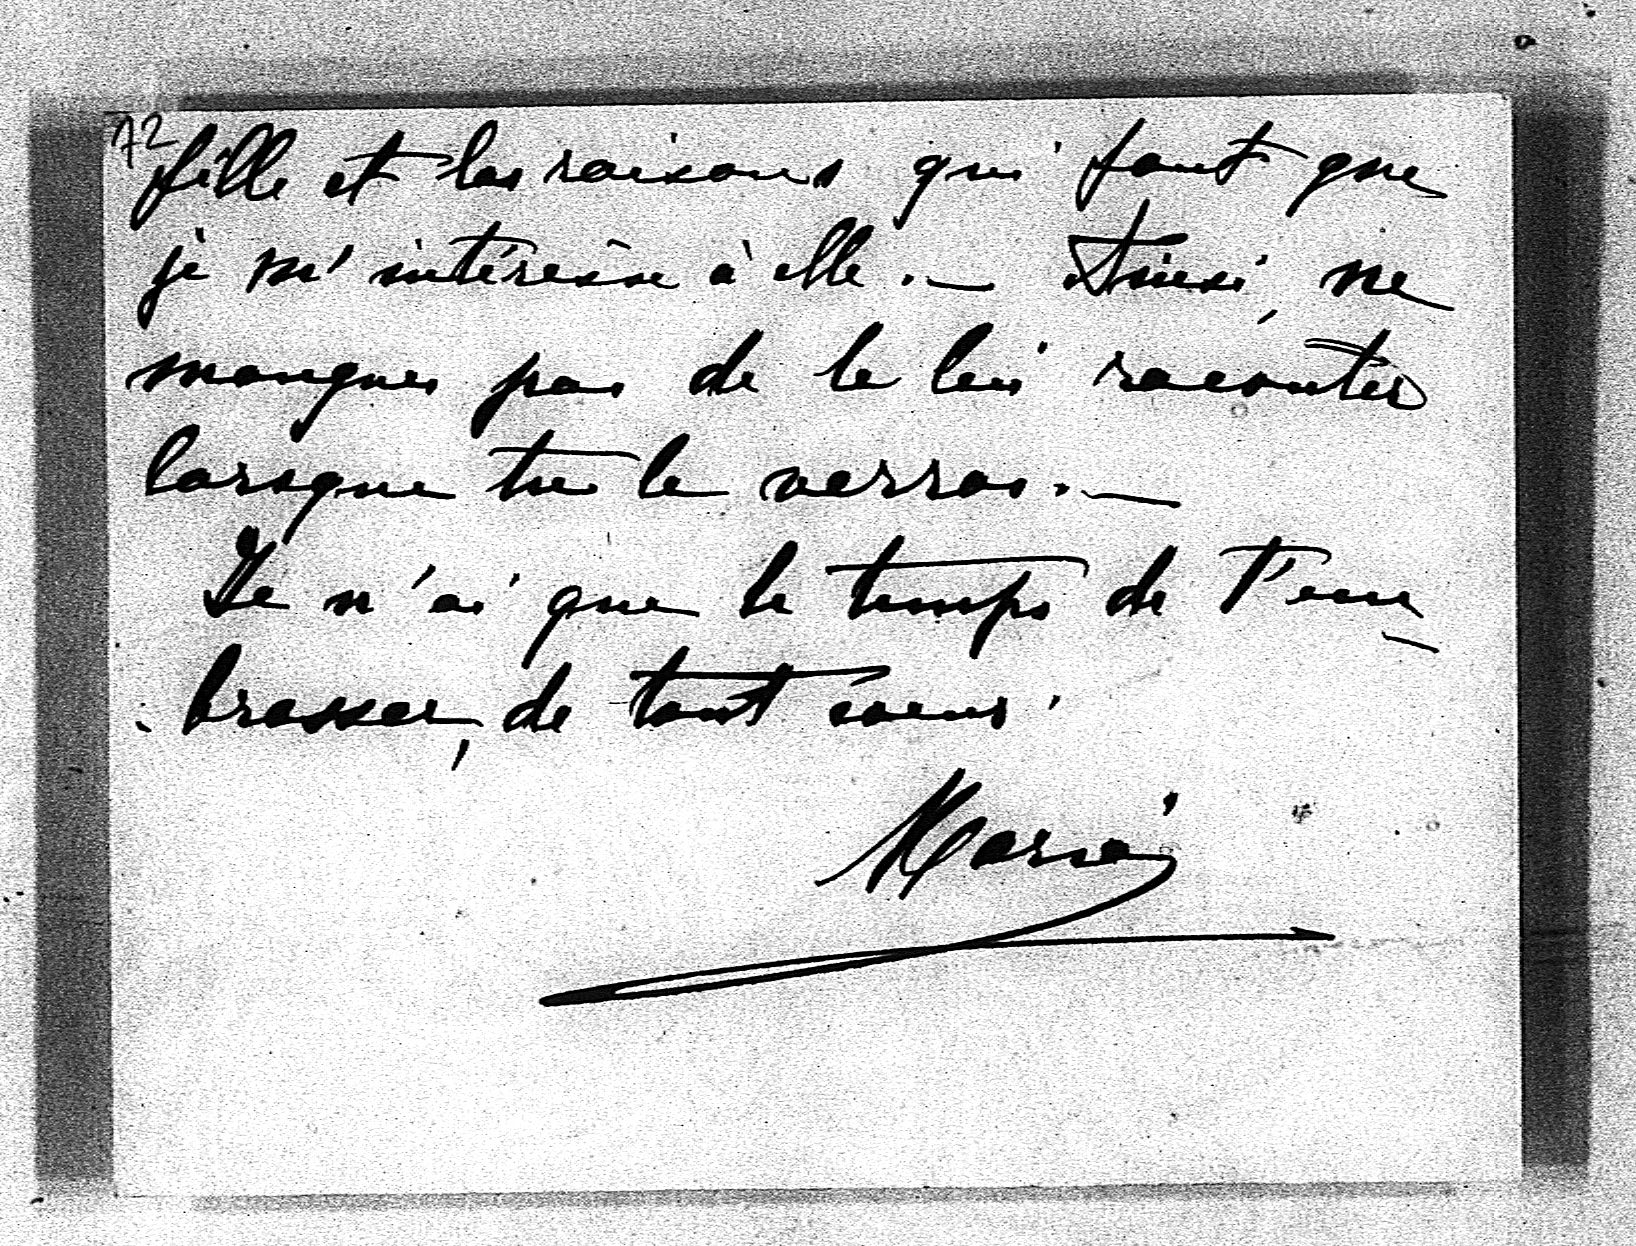 72
fille et les raisons qui font que
je m'intéresse à elle. — Ainsi, ne
manques pas de le lui raconter
lorsque tu le verras. —
Je n'ai que le temps de t'em-
brasser, de tout coeur.
Maria